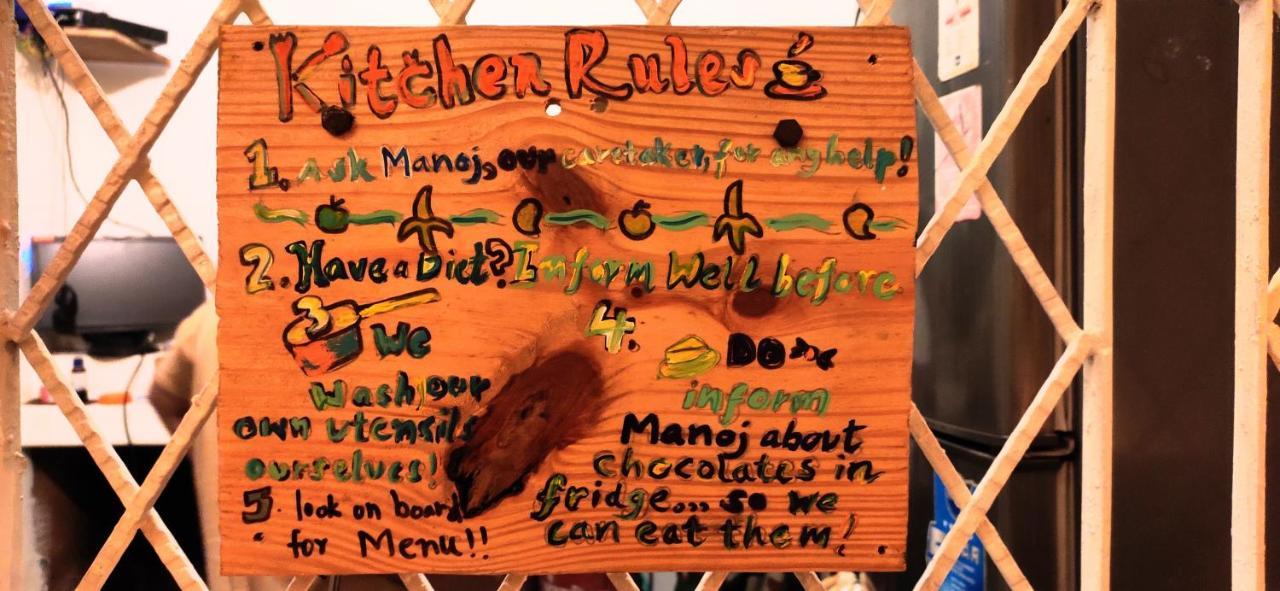 Kitchen Rules
1. Ask Manoj, our caretaker, for any help!
2. Have a Diet? Inform Well before
3 We
Wash our
own utensils
ourselves!
4.
Do
inform
Manoj about
chocolates in
fridge... so we
can eat them!
5. look on board
for Menu!!